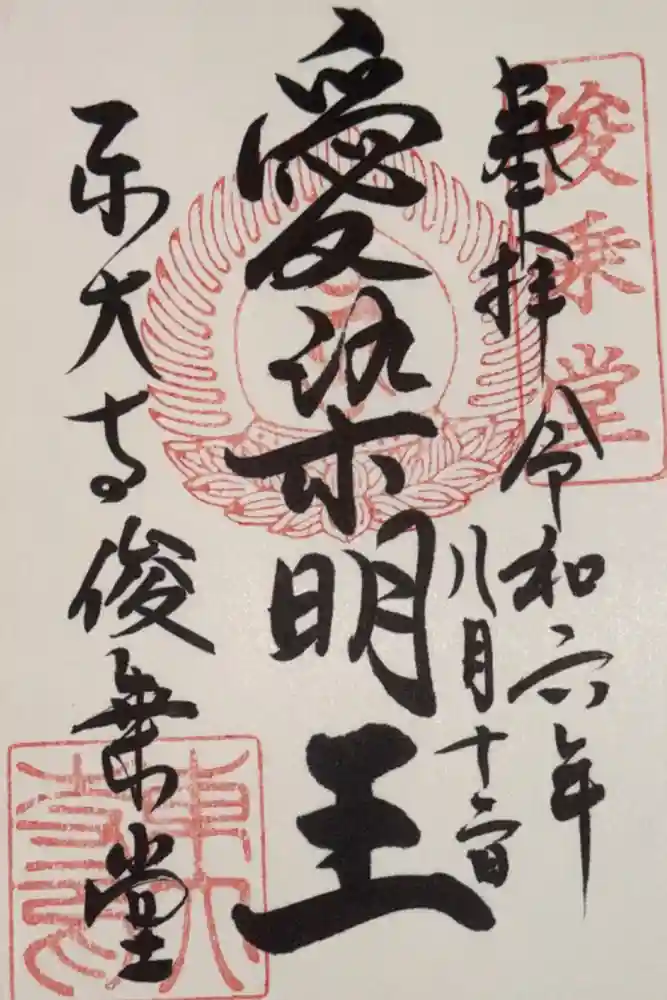 俊乗堂
奉拝
令和六年
八月十二日
愛染明王
東大寺俊乗堂